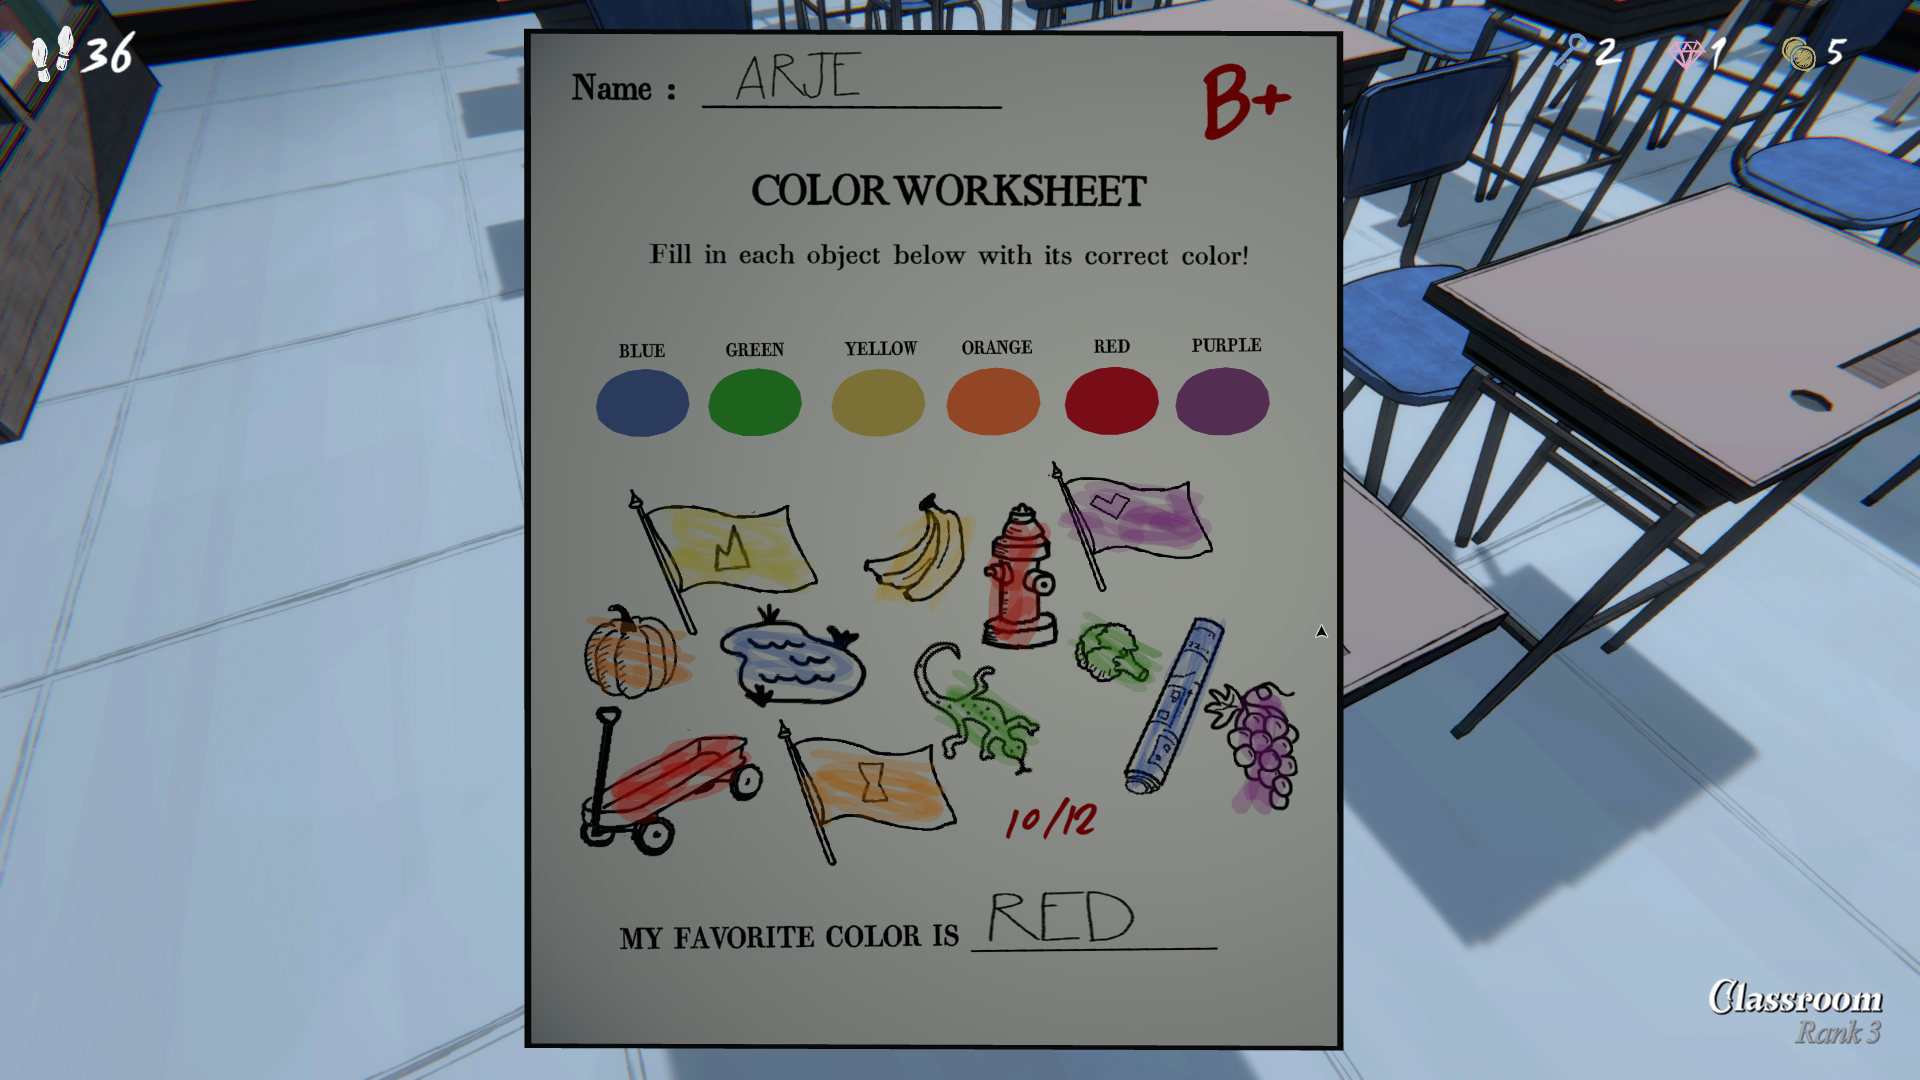 36
2 1 5
Name : ARJE
B+
COLOR WORKSHEET
Fill in each object below with its correct color!
BLUE GREEN YELLOW ORANGE RED PURPLE
10/12
MY FAVORITE COLOR IS RED
Classroom
Rank 3